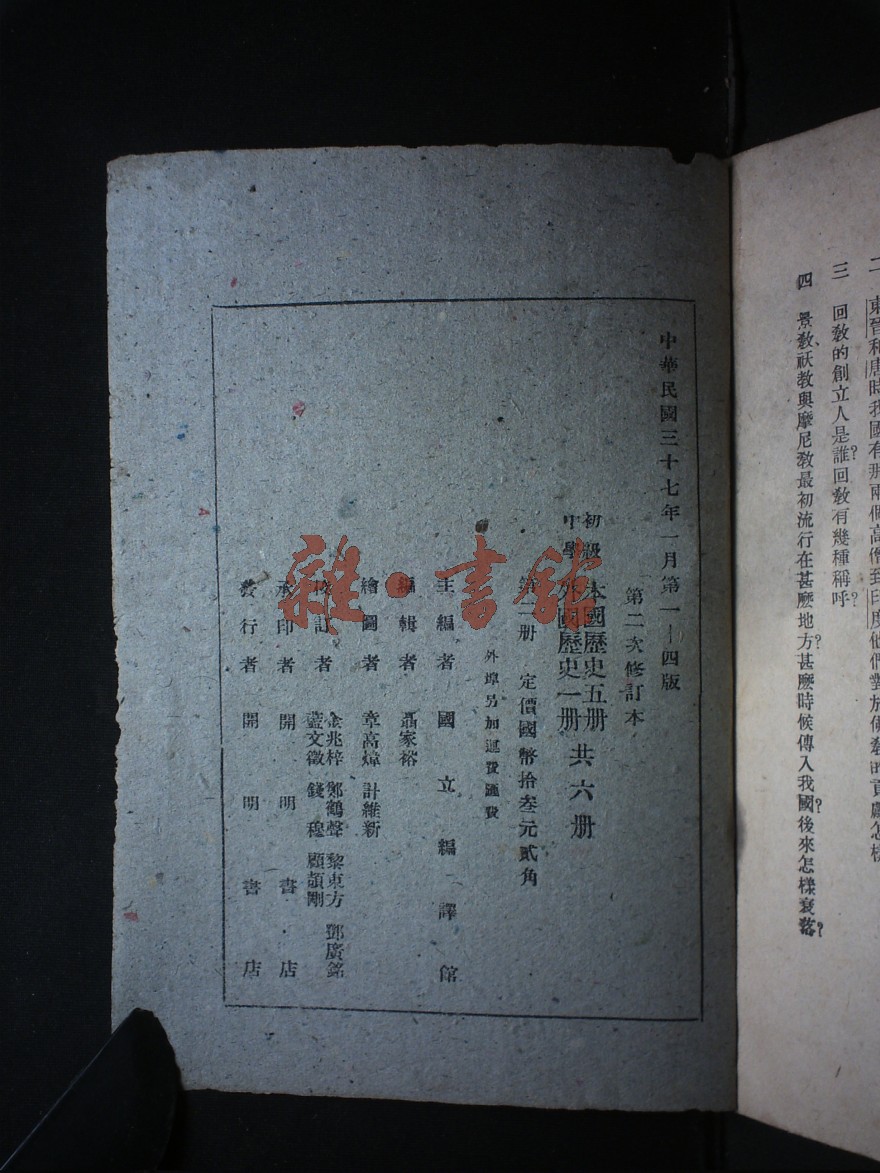 二 東晉和唐時我國有那兩個高僧到印度他們對於佛教的貢獻怎樣
三 回教的創立人是誰?回教有幾種稱呼?
四 景教、祆教與摩尼教最初流行在甚麼地方?甚麼時候傳入我國?後來怎樣衰落?
中華民國三十七年一月第一一四版
第二次修訂本
初級中學 本國歷史五册 外國歷史一册 共六册
第二册 定價國幣拾叁元貳角
外埠另加運費匯費
主編者 國立編譯館
編輯者 聶家裕
繪圖者 章高煒 計維新
校訂者 金兆梓 鄭鶴聲 黎東方 鄧廣銘
藍文徵 錢穆 顧頡剛
承印者 開明書店
發行者 開明書店
雜·書館